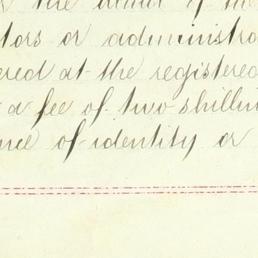 the
tors or administra
ered at the registered
a fee of two shillin
nce of identity or